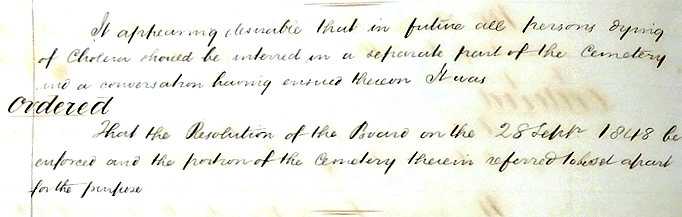 It appearing desirable that in future all persons dying
of Cholera should be interred in a separate part of the Cemetery
and a conversation having ensued thereon It was
Ordered
That the Resolution of the Board on the 28 Septr 1848 be
enforced and the portion of the Cemetery therein referred to be set apart
for the purpose